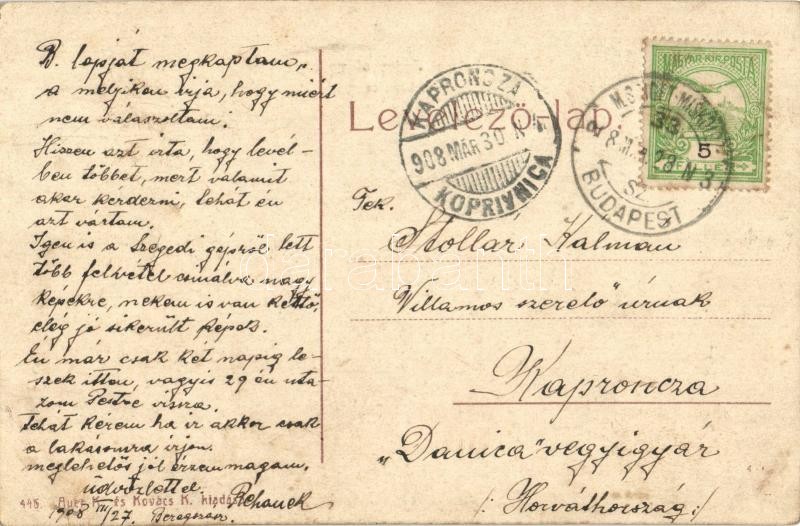 B. lapját megkaptam,
a melyiken írja, hogy miért
nem válaszoltam.
Hiszen azt írta, hogy levél-
ben többet, mert valamit
akar kérdezni, tehát én
azt vártam.
Igen is a Szegedi gépről lett
több felvétel csinálva nagy
képekre, nekem is van kettő,
elég jó sikerült képek.
Én már csak két napig le-
szek itten, vagyis 29 én uta-
zom Pestre vissza.
Tehát kérem ha ír akkor csak
a lakásomra írjon.
meglehetős jól érzem magam.
üdvözlettel
1908 III/27. Beregszász.
448. és Kovács K. kiadása
Levelező-lap.
KAPRONCZA
908 MAR 30 N
KOPRIVNICA
MAGYAR KIR. POSTA
5
33
BUDAPEST
Tek.
Stollár Kálmán
Villamos szerelő úrnak
Kaproncza
„Danica" vegyigyár
/: Horváthország :/